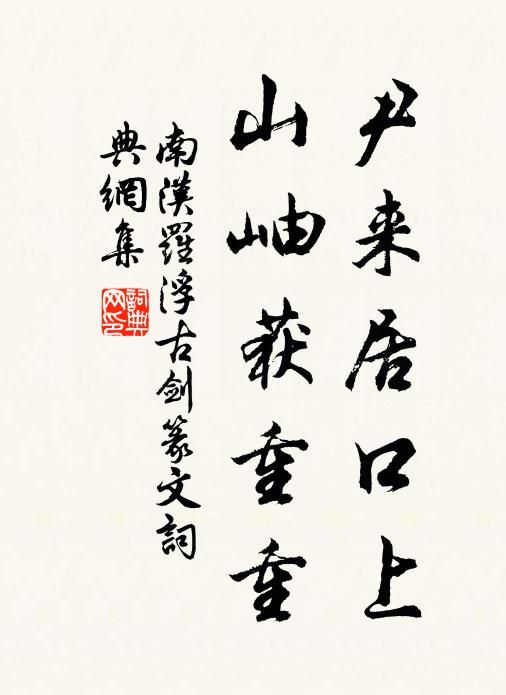 尹来居口上
山岫获重重
南漢羅浮古劍篆文詞
典網集
詞典
网印